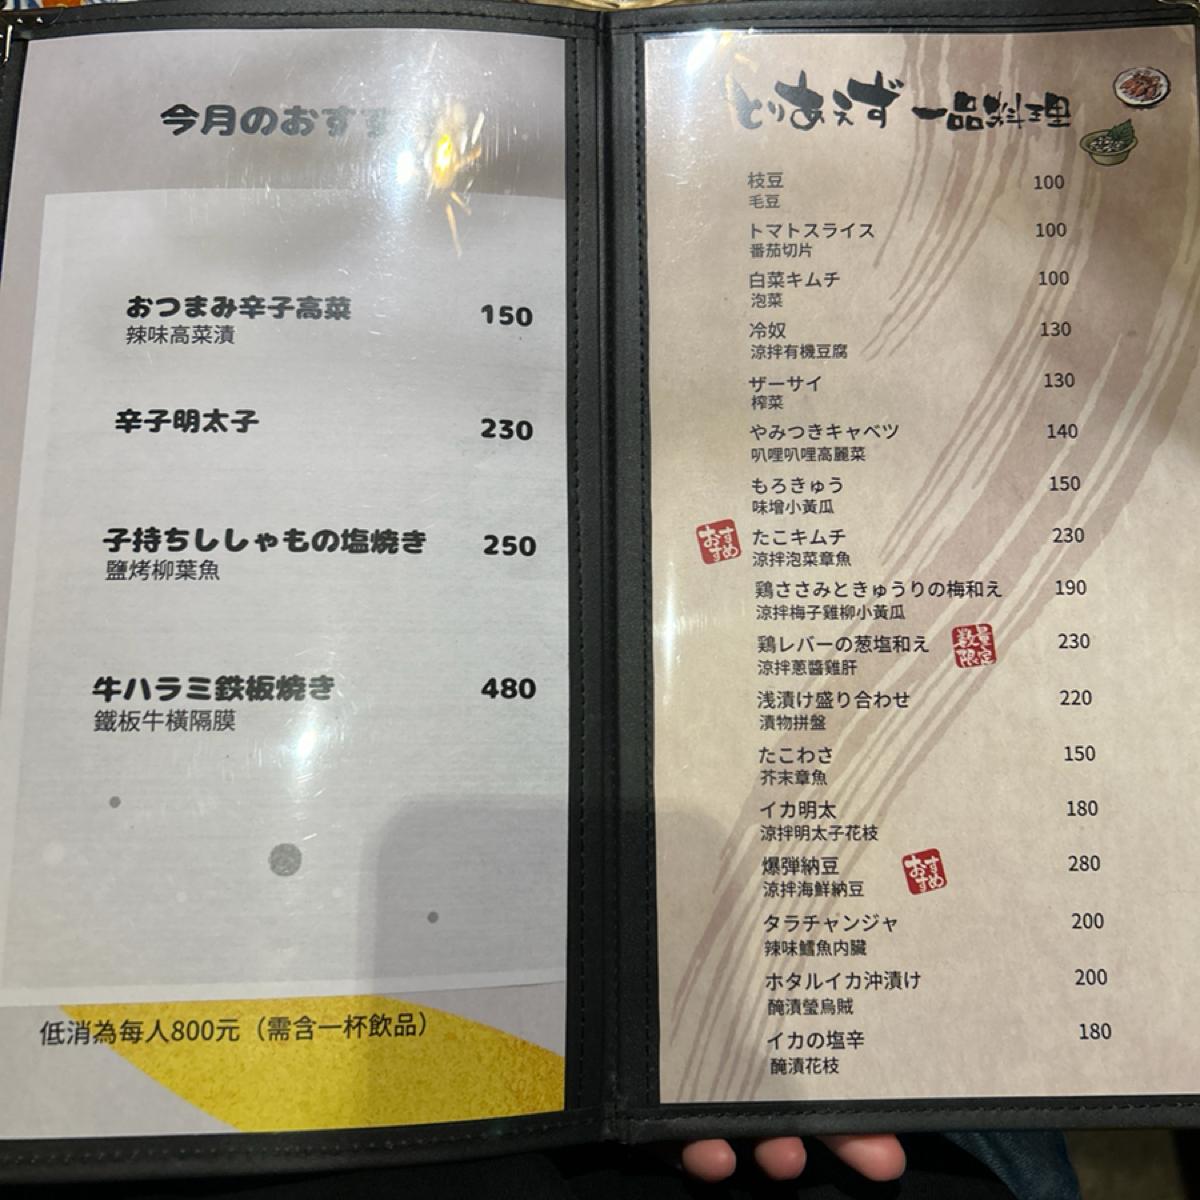 今月のおすす
おつまみ辛子高菜 150
辣味高菜漬
辛子明太子 230
子持ちししゃもの塩焼き 250
鹽烤柳葉魚
牛ハラミ鉄板焼き 480
鐵板牛橫隔膜
低消為每人800元（需含一杯飲品）
とりあえず 一品料理
枝豆 100
毛豆
トマトスライス 100
番茄切片
白菜キムチ 100
泡菜
冷奴 130
涼拌有機豆腐
ザーサイ 130
榨菜
やみつきキャベツ 140
叭哩叭哩高麗菜
もろきゅう 150
味增小黃瓜
おすすめ
たこキムチ 230
涼拌泡菜章魚
鶏ささみときゅうりの梅和え 190
涼拌梅子雞柳小黃瓜
鶏レバーの葱塩和え 数量限定 230
涼拌蔥醬雞肝
浅漬け盛り合わせ 220
漬物拼盤
たこわさ 150
芥末章魚
イカ明太 180
涼拌明太子花枝
爆弾納豆 おすすめ 280
涼拌海鮮納豆
タラチャンジャ 200
辣味鱈魚内臟
ホタルイカ沖漬け 200
醃漬螢烏賊
イカの塩辛 180
醃漬花枝